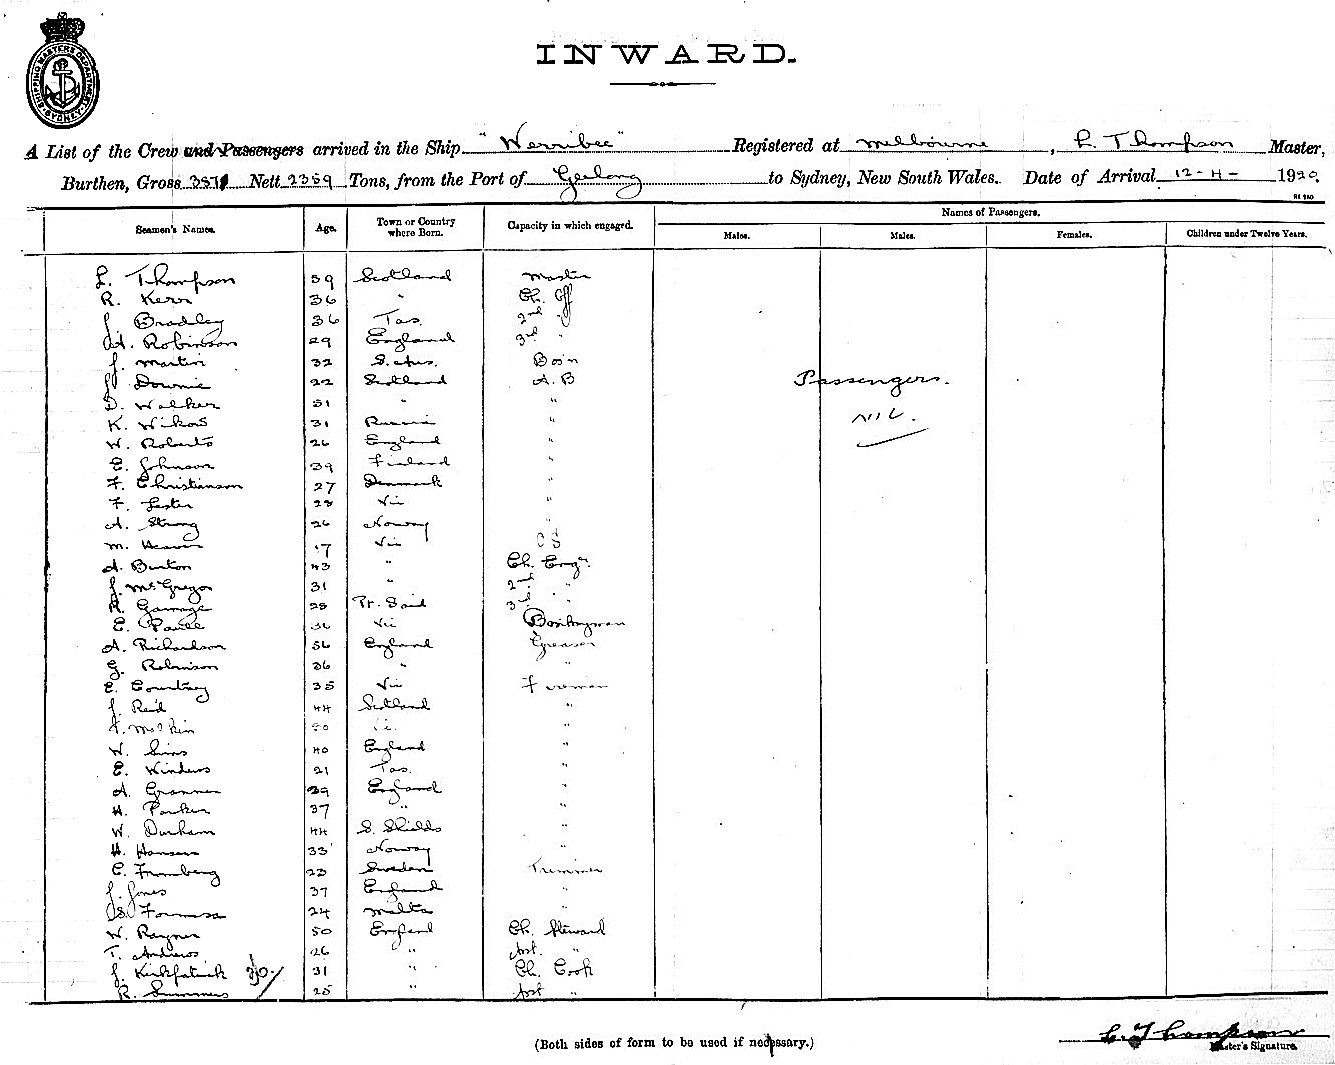 SHIPPING MASTERS DEPARTMENT SYDNEY
INWARD.
A List of the Crew and Passengers arrived in the Ship "Werribee" Registered at Melbourne, L. Thompson Master,
Burthen, Gross Nett 2359 Tons, from the Port of Geelong to Sydney, New South Wales. Date of Arrival 12-4-1920
Names of Passengers.
Seamen's Names. Age. Town or Country where Born. Capacity in which engaged. Males. Males. Females. Children under Twelve Years.
L. Thompson 59 Scotland Master
R. Kerr 36 " Ch. Off
J. Bradley 36 Tas. 2nd "
A. Robinson 29 England 3rd "
J. Martin 32 S. Aus. Bo'n
J. Downie 22 Scotland A.B
D. Walker 51 " "
K. 31 Russia "
W. Roberts 26 England "
E. Johnson 39 Finland "
F. Christianson 27 Denmark "
F. Lester 28 Vic "
A. Strong 26 Norway "
M. 17 Vic O S
A. Burton 43 " Ch. Engr.
J. McGregor 31 " 2nd "
R. Gamage 28 Pt. Said 3rd "
E. 36 Vic Donkeyman
A. Richardson 56 England Greaser
G. Robinson 36 " "
E. Courtney 35 Vic Fireman
J. Reid 44 Scotland "
"
W. Sims 40 England "
E. Winders 21 Tas. "
A. 39 England "
H. Parker 37 " "
W. Durham 44 S. Shields "
H. Hansen 33 Norway "
E. 23 Sweden Trimmer
J. Jones 37 England "
S. Formosa 24 Malta "
W. Rayner 50 England Ch. Steward
T. Andrews 26 " Asst. "
J. Kirkpatrick 31 " Ch. Cook
R. Summers 25 " Asst "
Passengers.
NIL.
L. Thompson
(Both sides of form to be used if necessary.) Master's Signature.